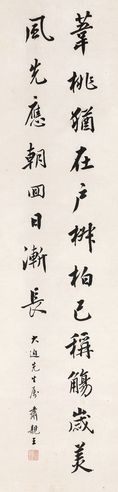 葦桃猶在户椒柏已稱觴歲美
風先應朝回日漸長
大迫先生属 肅親王